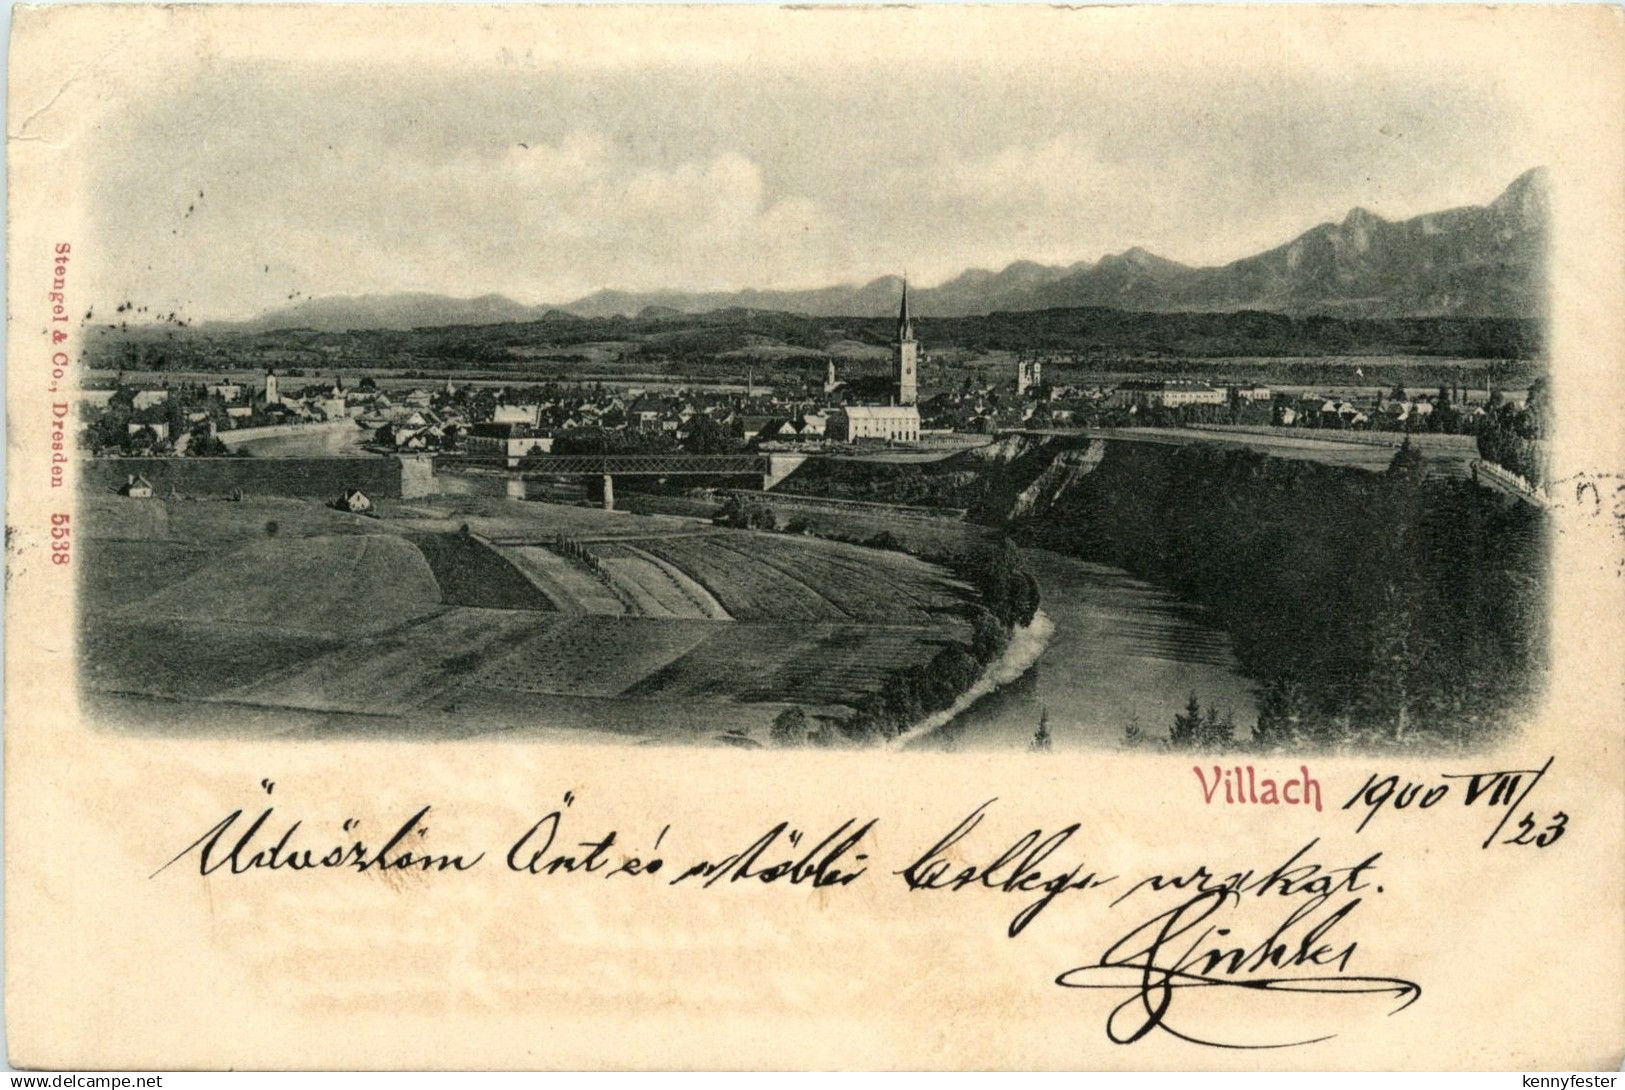 Stengel & Co., Dresden 5538
Villach 1900 VII/23
Üdvözlöm Önt és a többi Collega urakat.
www.delcampe.net
kennyfester